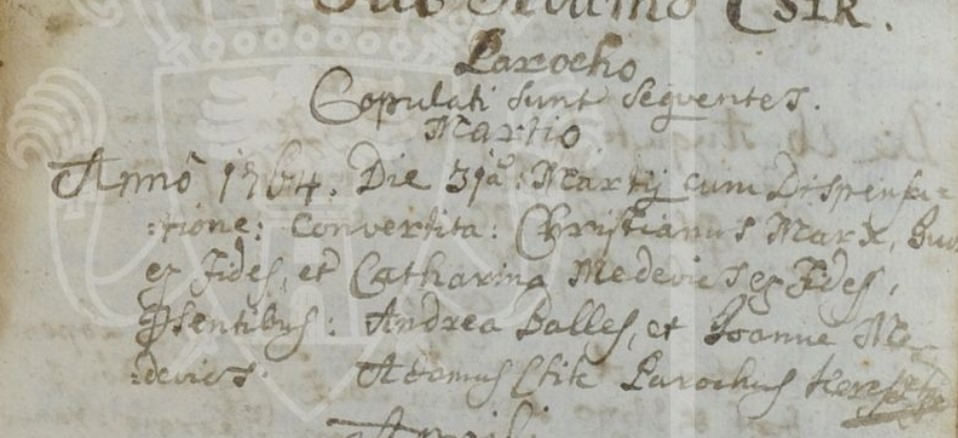 Sub Adamo Csik.
Parocho
Copulati sunt seqventes.
Martio
Anno 1764. Die 31a: Martij cum Dispensa=
:tione: Convertita: Christianus Marx,
et Catharina Medevics
Psentibus: Andrea Balles, et Joanne Me
:devics. Adamus Csik Parochus
Aprili